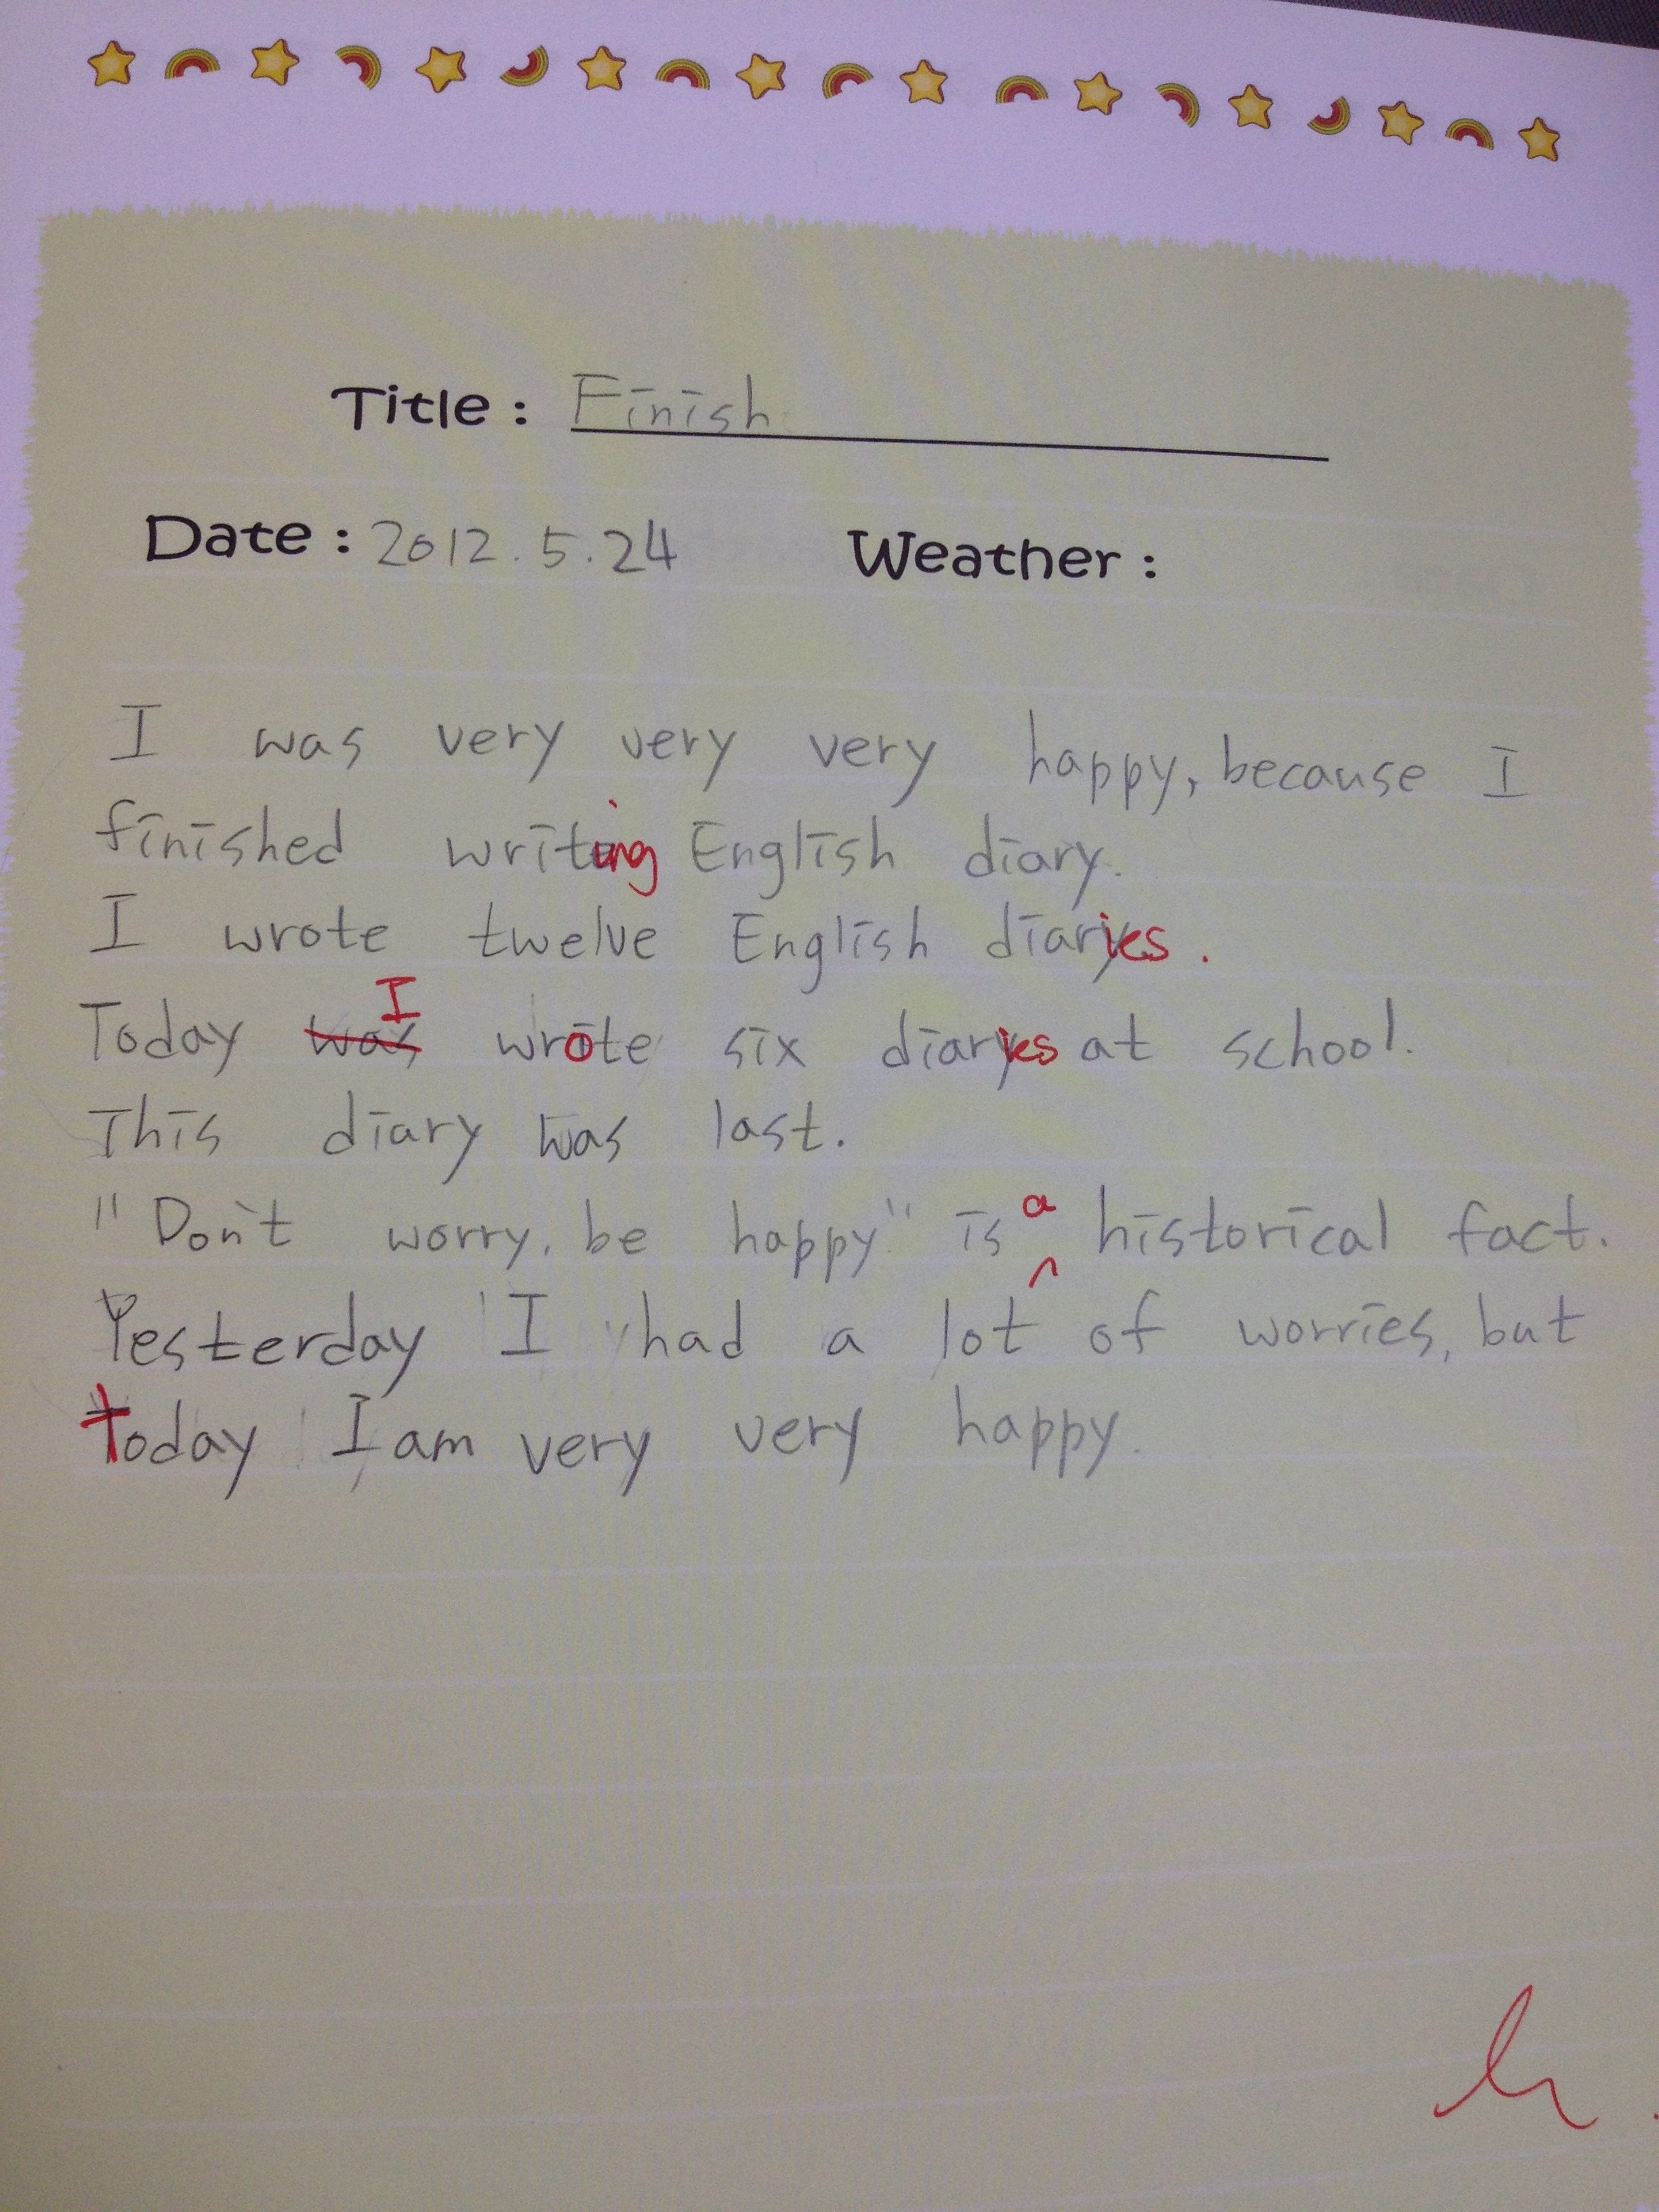 Title : Finish
Date : 2012.5.24 Weather :
I was very very very happy, because I
finished writing English diary.
I wrote twelve English diaries.
I
Today was wrote six diaries at school.
This diary was last.
"Don't worry, be happy" is a historical fact.
Yesterday I had a lot of worries, but
today I am very very happy.